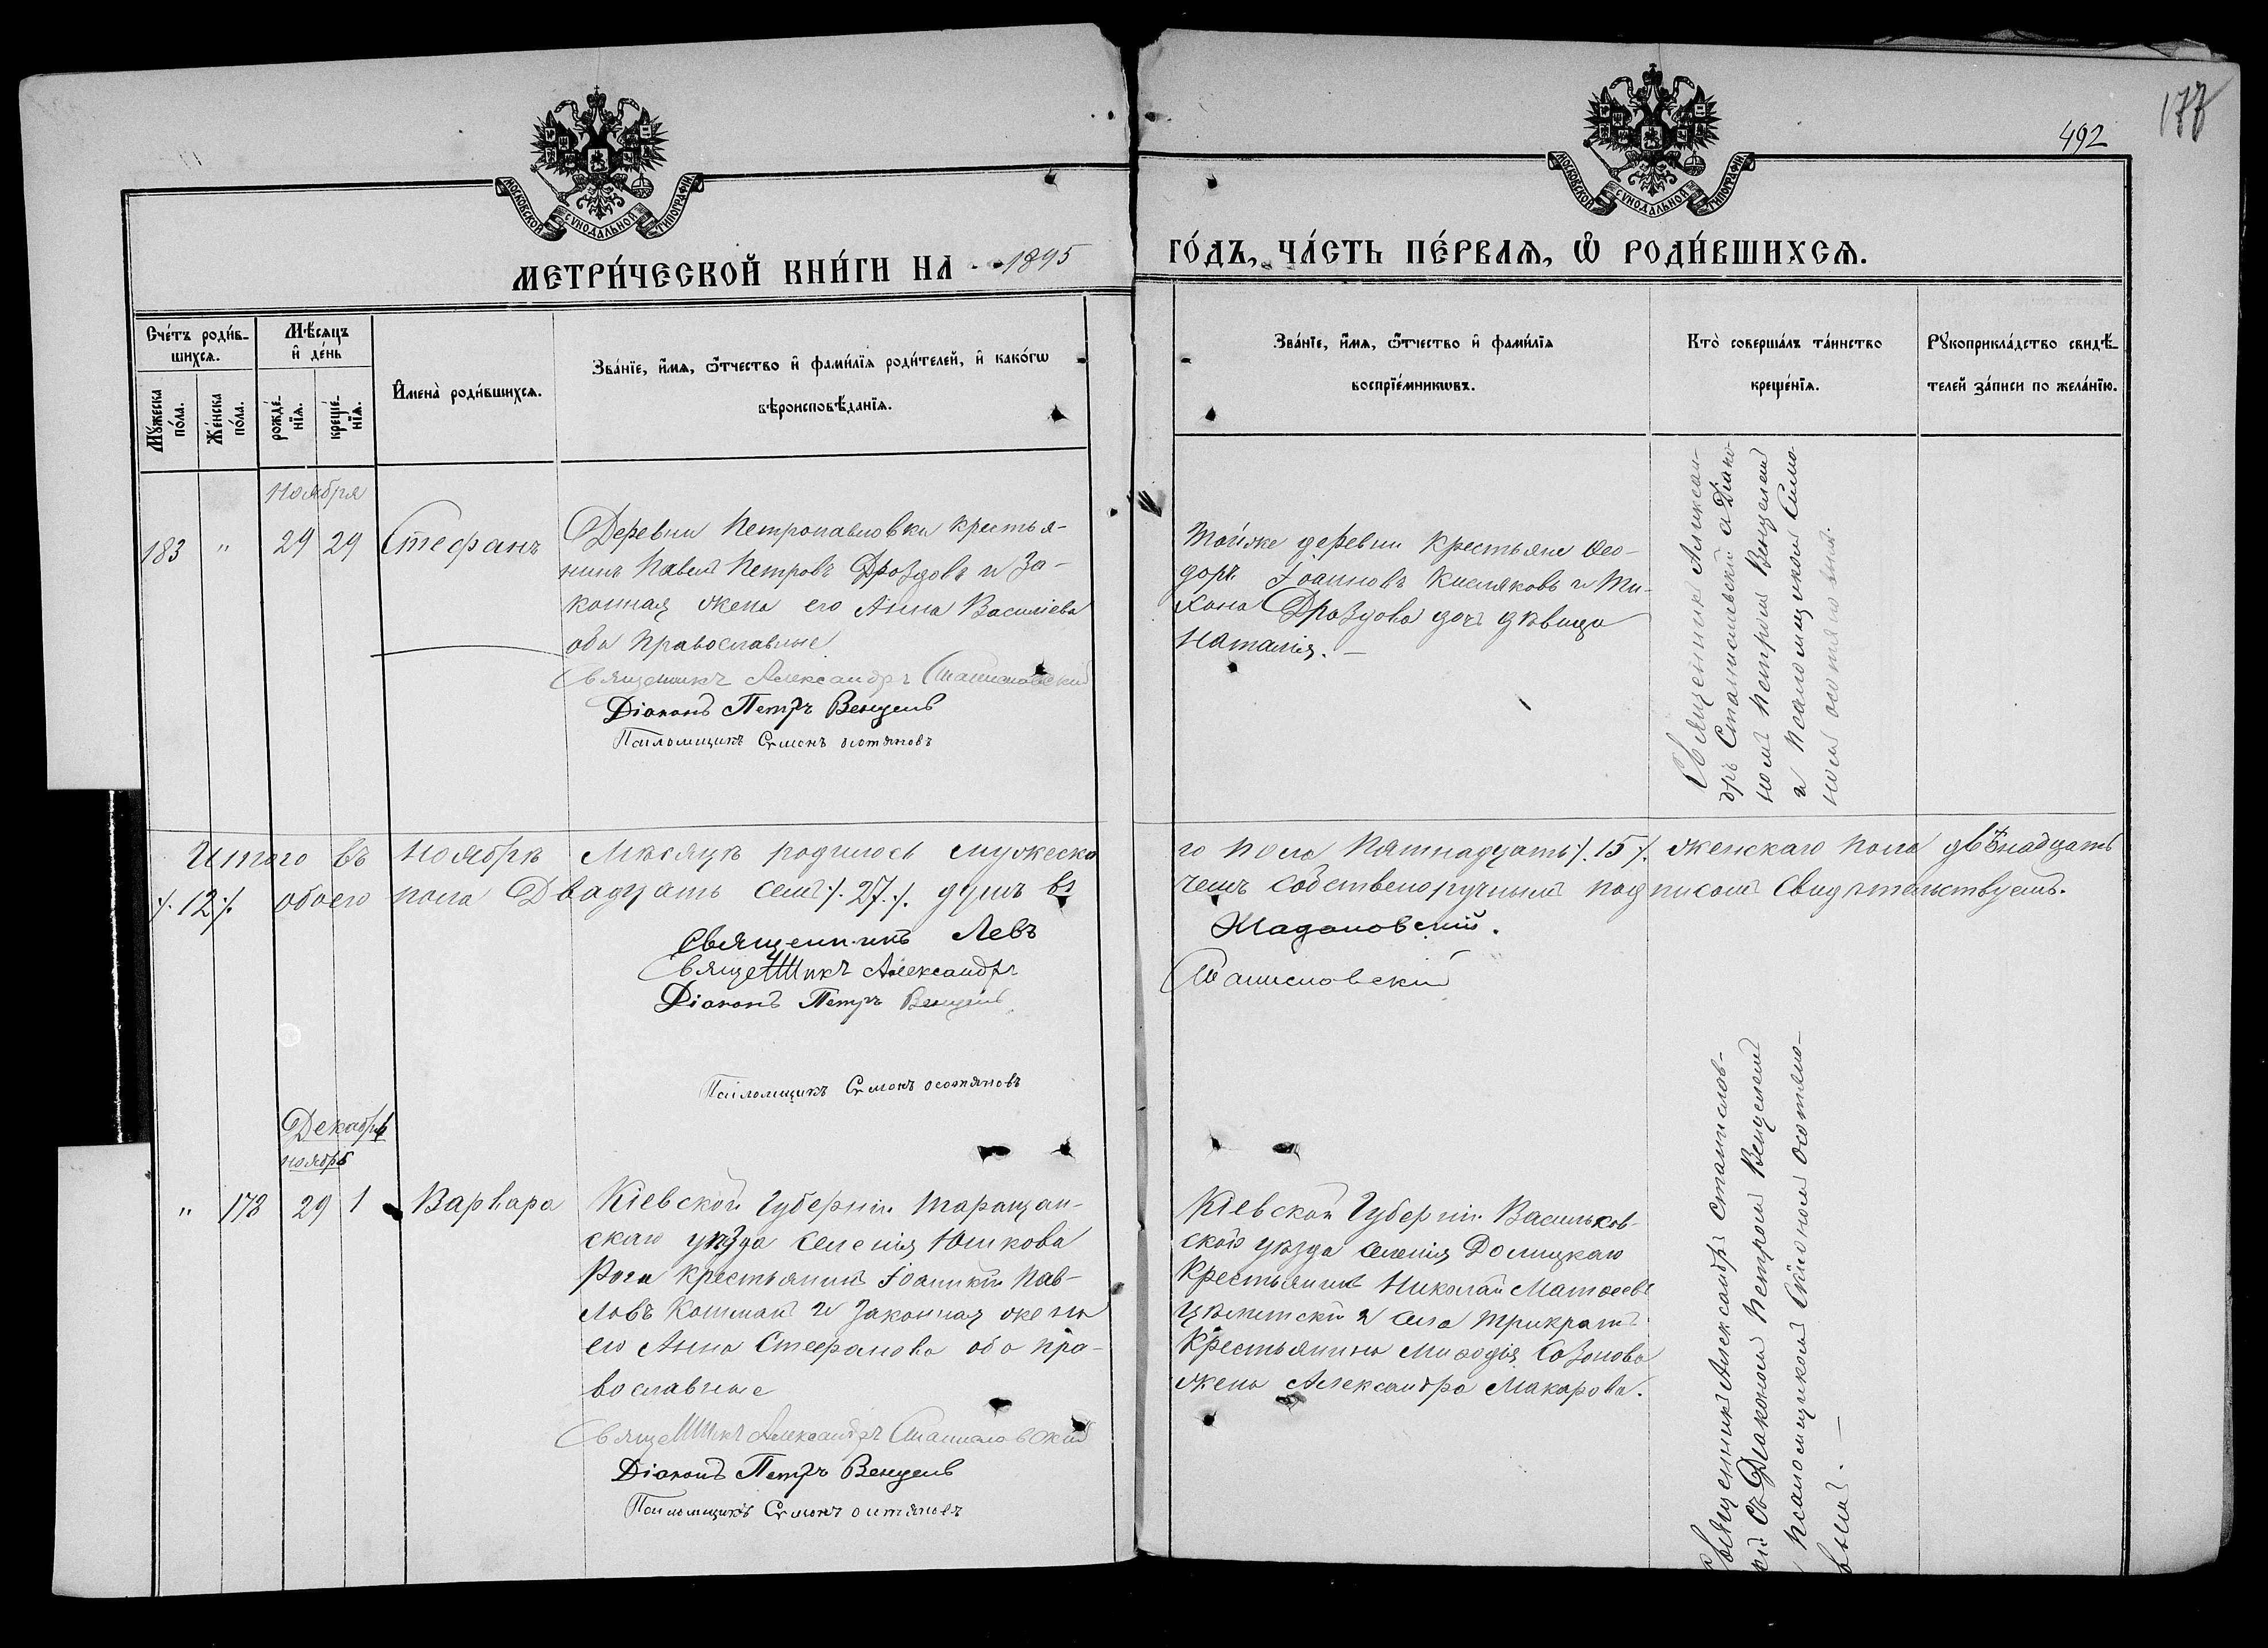 177
492
МОСКОВСКОЙ СѴНОДАЛЬНОЙ ТИПОГРАФІИ
МОСКОВСКОЙ СѴНОДАЛЬНОЙ ТИПОГРАФІИ
МЕТРИ́ЧЕСКОЙ КНИ́ГИ НА 1895
ГО́ДЪ, ЧА́СТЬ ПЕ́РВАѦ, Ѽ РОДИ́ВШИХСѦ.
Сче́тъ роди́в-
шихсѧ.
Мꙋ́жеска по́ла.
Же́нска по́ла.
Мѣ́сѧцъ
и҆ де́нь
рожде́-
нїѧ.
креще́-
нїѧ.
И҆мена̀ роди́вшихсѧ.
Зва́нїе, и҆́мѧ, ѻ҆́тчество и҆ фами́лїѧ роди́телей, и҆ како́гѡ
вѣроисповѣ́данїѧ.
Зва́нїе, и҆́мѧ, ѻ҆́тчество и҆ фами́лїѧ
воспрїе́мникѡвъ.
Кто̀ соверша́лъ та́инство
креще́нїѧ.
Рꙋкоприкла́дство свидѣ́-
телей за́писи по жела́нїю.
Ноября
183 " 29 29 Стефанъ
Деревни Петропавловки крестья-
нинъ Павелъ Петровъ Дроздовъ и за-
конная жена его Анна Василіева
оба православные
Священникъ Александръ Станиславскій
Діаконъ Петръ Венцель
Псаломщикъ Сѵмонъ Осотяновъ
Тойже деревни крестьяне Ѳео-
доръ Іоанновъ Кисляковъ и Ти-
хона Дроздова дочь дѣвица
Наталія. —
Священникъ Алексан-
дръ Станиславскій съ Діако-
номъ Петромъ Венцелемъ
и Псаломщикомъ Симо-
номъ Осотяновымъ.
Итого въ Ноябрѣ мѣсяцѣ родилось мужеска
го пола пятнадцать ./. 15 ./. женскаго пола двѣнадцать
./. 12 ./. обоего пола Двадцать семь ./. 27 ./. душъ въ
чемъ собственоручнымъ подписомъ свидѣтельствуемъ.
Священникъ Левъ
Жадановскій.
Священникъ Александръ
Станиславскій
Діаконъ Петръ Венцель
Псаломщикъ Сѵмонъ Осотяновъ
Декабрь
ноябрь
" 178 29 1 Варвара
Кіевской Губерніи Таращан-
скаго уѣзда селенія Юшкова
Рога крестьянинъ Іоанникій Пав-
ловъ Кошмакъ и законная жена
его Анна Стефанова оба пра-
вославные
Священникъ Александръ Станиславскій
Діаконъ Петръ Венцель
Псаломщикъ Сѵмонъ Осотяновъ
Кіевской Губерніи Васильков-
скаго уѣзда селенія Долицкаго
Крестьянинъ Николай Матѳеевъ
и села Трикратъ
Крестьянина Меѳодія Созонова
жена Александра Макарова.
Священникъ Александръ Станиславс-
кій съ Діакономъ Петромъ Венцелемъ
и Псаломщикомъ Сѵмономъ Осотяно-
вымъ. —